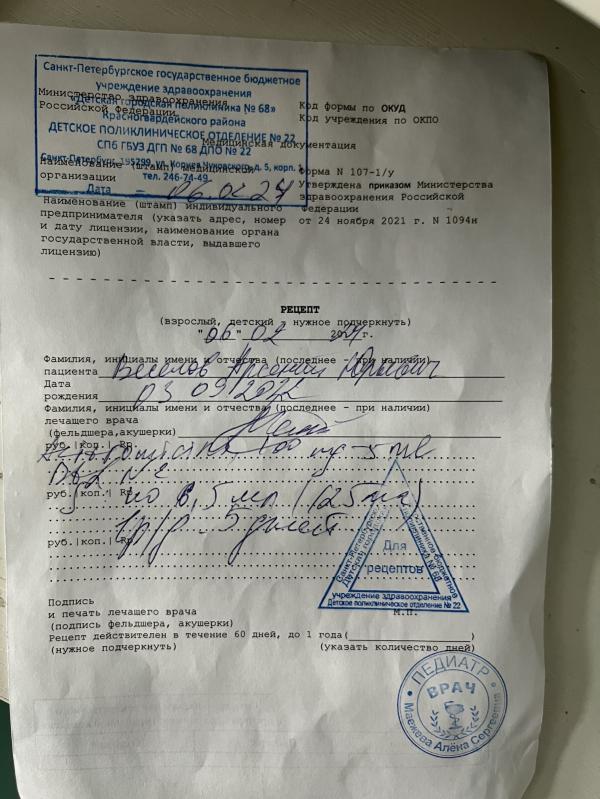 Санкт-Петербургское государственное бюджетное
учреждение здравоохранения
«Детская городская поликлиника № 68»
Красногвардейского района
ДЕТСКОЕ ПОЛИКЛИНИЧЕСКОЕ ОТДЕЛЕНИЕ № 22
СПб ГБУЗ ДГП № 68 ДПО № 22
Санкт-Петербург 195299, ул. Корнея Чуковского д. 5, корп. 1
тел. 246-74-49
Дата 06.02.24
Министерство здравоохранения
Российской Федерации
Код формы по ОКУД
Код учреждения по ОКПО
Медицинская документация
наименование (штамп) медицинской
организации
Форма N 107-1/у
Утверждена приказом Министерства
здравоохранения Российской
Федерации
от 24 ноября 2021 г. N 1094н
Наименование (штамп) индивидуального
предпринимателя (указать адрес, номер
и дату лицензии, наименование органа
государственной власти, выдавшего
лицензию)
РЕЦЕПТ
(взрослый, детский - нужное подчеркнуть)
"06" 02 2024 г.
Фамилия, инициалы имени и отчества (последнее - при наличии)
пациента Веселов Арсений Юрьевич
Дата
рождения 03 09 2022
Фамилия, инициалы имени и отчества (последнее - при наличии)
лечащего врача
(фельдшера, акушерки)
руб.|коп.| Rp.
100 mg - 5 ml
N 2
руб.|коп.| Rp.
по 6,5 мл (125 мг)
1 р/д - 5 дней
руб.|коп.| Rp.
Санкт-Петербургское государственное бюджетное
учреждение здравоохранения
Детская городская поликлиника № 68
Детское поликлиническое отделение № 22
Для
рецептов
Подпись
и печать лечащего врача
М.П.
(подпись фельдшера, акушерки)
Рецепт действителен в течение 60 дней, до 1 года(____________)
(нужное подчеркнуть) (указать количество дней)
ПЕДИАТР
ВРАЧ
Алёна Сергеевна